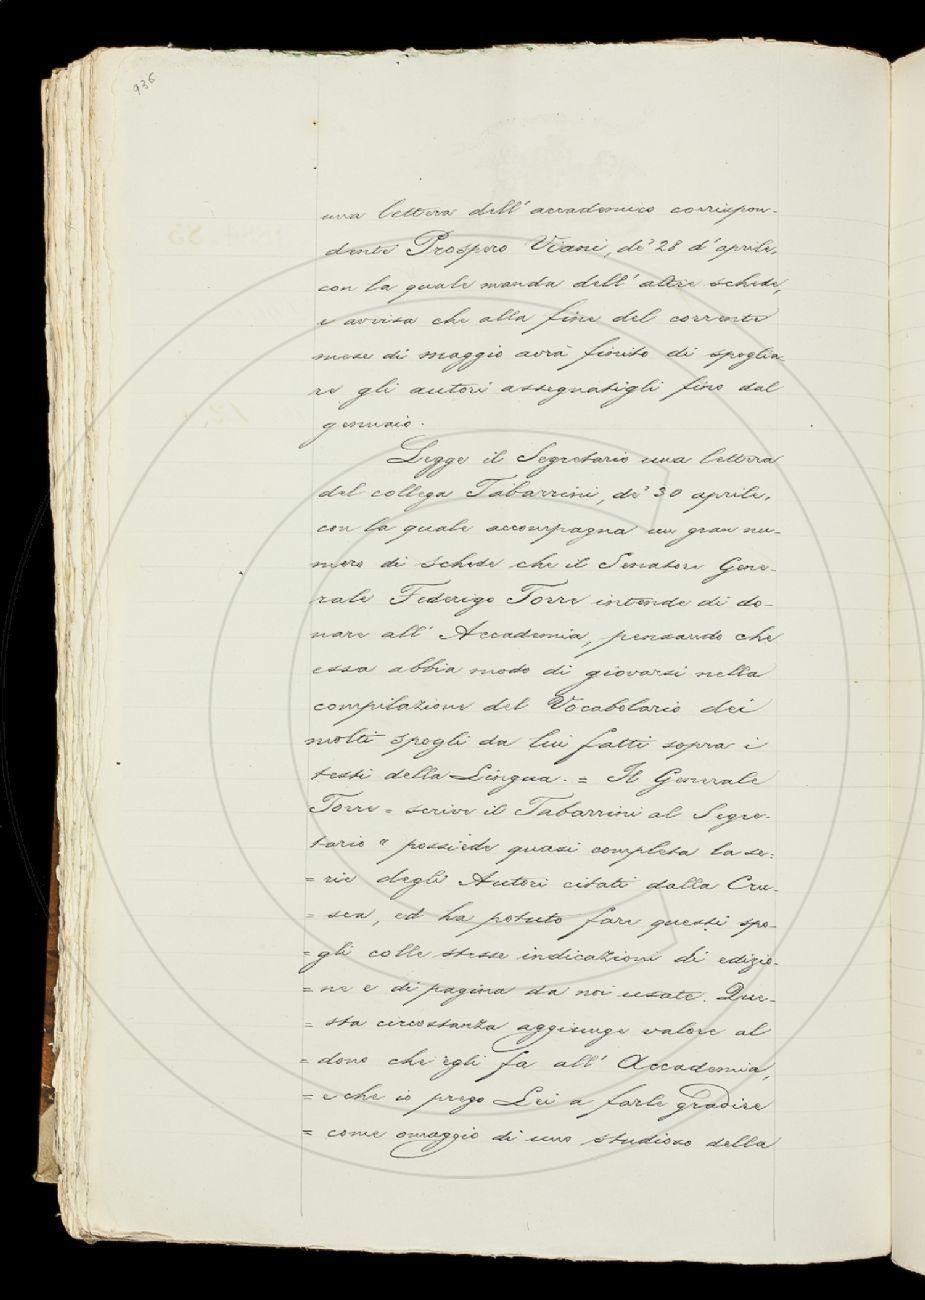 936
una lettera dell' accademico corrispon-
dente Prospero Viani, de' 28 d'aprile,
con la quale manda dell' altre schede,
e avvisa che alla fine del corrente
mese di maggio avrà finito di spoglia-
re gli autori assegnatigli fino dal
gennaio.
Legge il Segretario una lettera
del collega Tabarrini, de' 30 aprile,
con la quale accompagna un gran nu-
mero di schede che il Senatore Gene-
rale Federigo Torre intende di do-
nare all' Accademia, pensando che
essa abbia modo di giovarsi nella
compilazione del Vocabolario dei
molti spogli da lui fatti sopra i
testi della Lingua. = Il Generale
Torre = scrive il Tabarrini al Segre-
tario " possiede quasi completa la se-
= rie degli Autori citati dalla Cru-
= sca, ed ha potuto fare questi spo-
= gli colle stesse indicazioni di edizio-
= ne e di pagina da noi usate. Que-
= sta circostanza aggiunge valore al
= dono che egli fa all' Accademia,
= e che io prego Lei a farle gradire
= come omaggio di uno studioso della